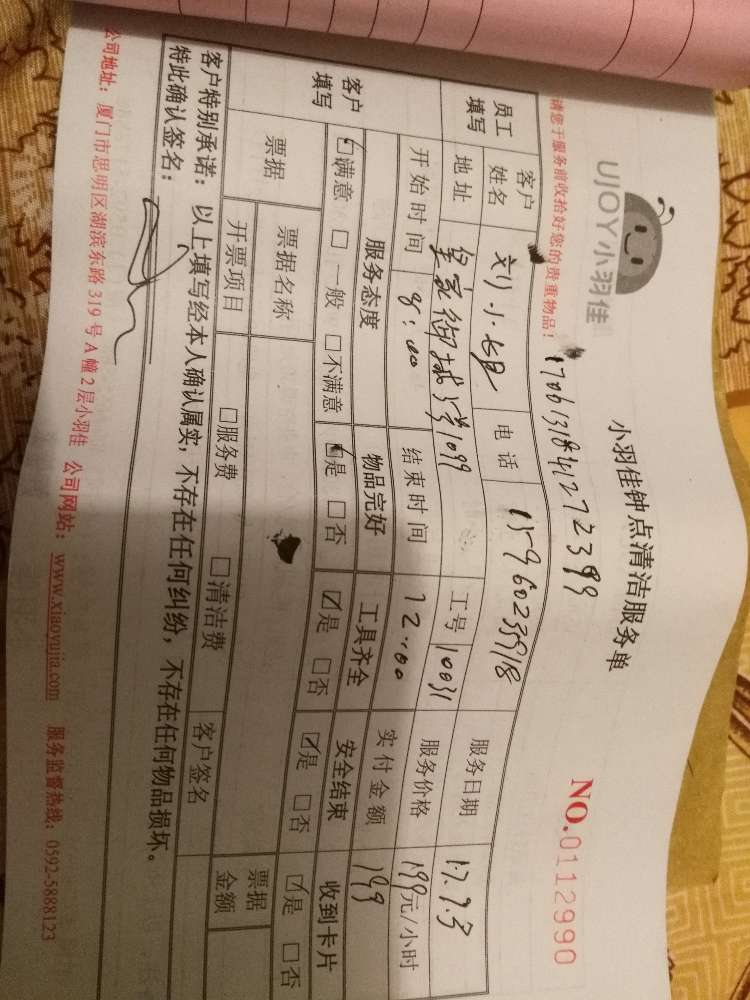 UJOY小羽佳
小羽佳钟点清洁服务单
NO.0112990
请您于服务前收拾好您的贵重物品！
员工填写
客户姓名 刘小姐 电话 服务日期 17.9.3
地址 皇家御城 1099 工号 10031 服务价格 199元/小时
开始时间 8:00 结束时间 12:00 实付金额 199
客户填写
服务态度 物品完好 工具齐全 安全结束 收到卡片
☑满意 □一般 □不满意 ☑是 □否 ☑是 □否 ☑是 □否 ☑是 □否
票据 票据名称 票据金额
开票项目 □服务费 □清洁费 客户签名
客户特别承诺：以上填写经本人确认属实，不存在任何纠纷，不存在任何物品损坏。
特此确认签名：
公司地址：厦门市思明区湖滨东路319号A幢2层小羽佳 公司网站：www.xiaoyujia.com 服务监督热线：0592-5888123